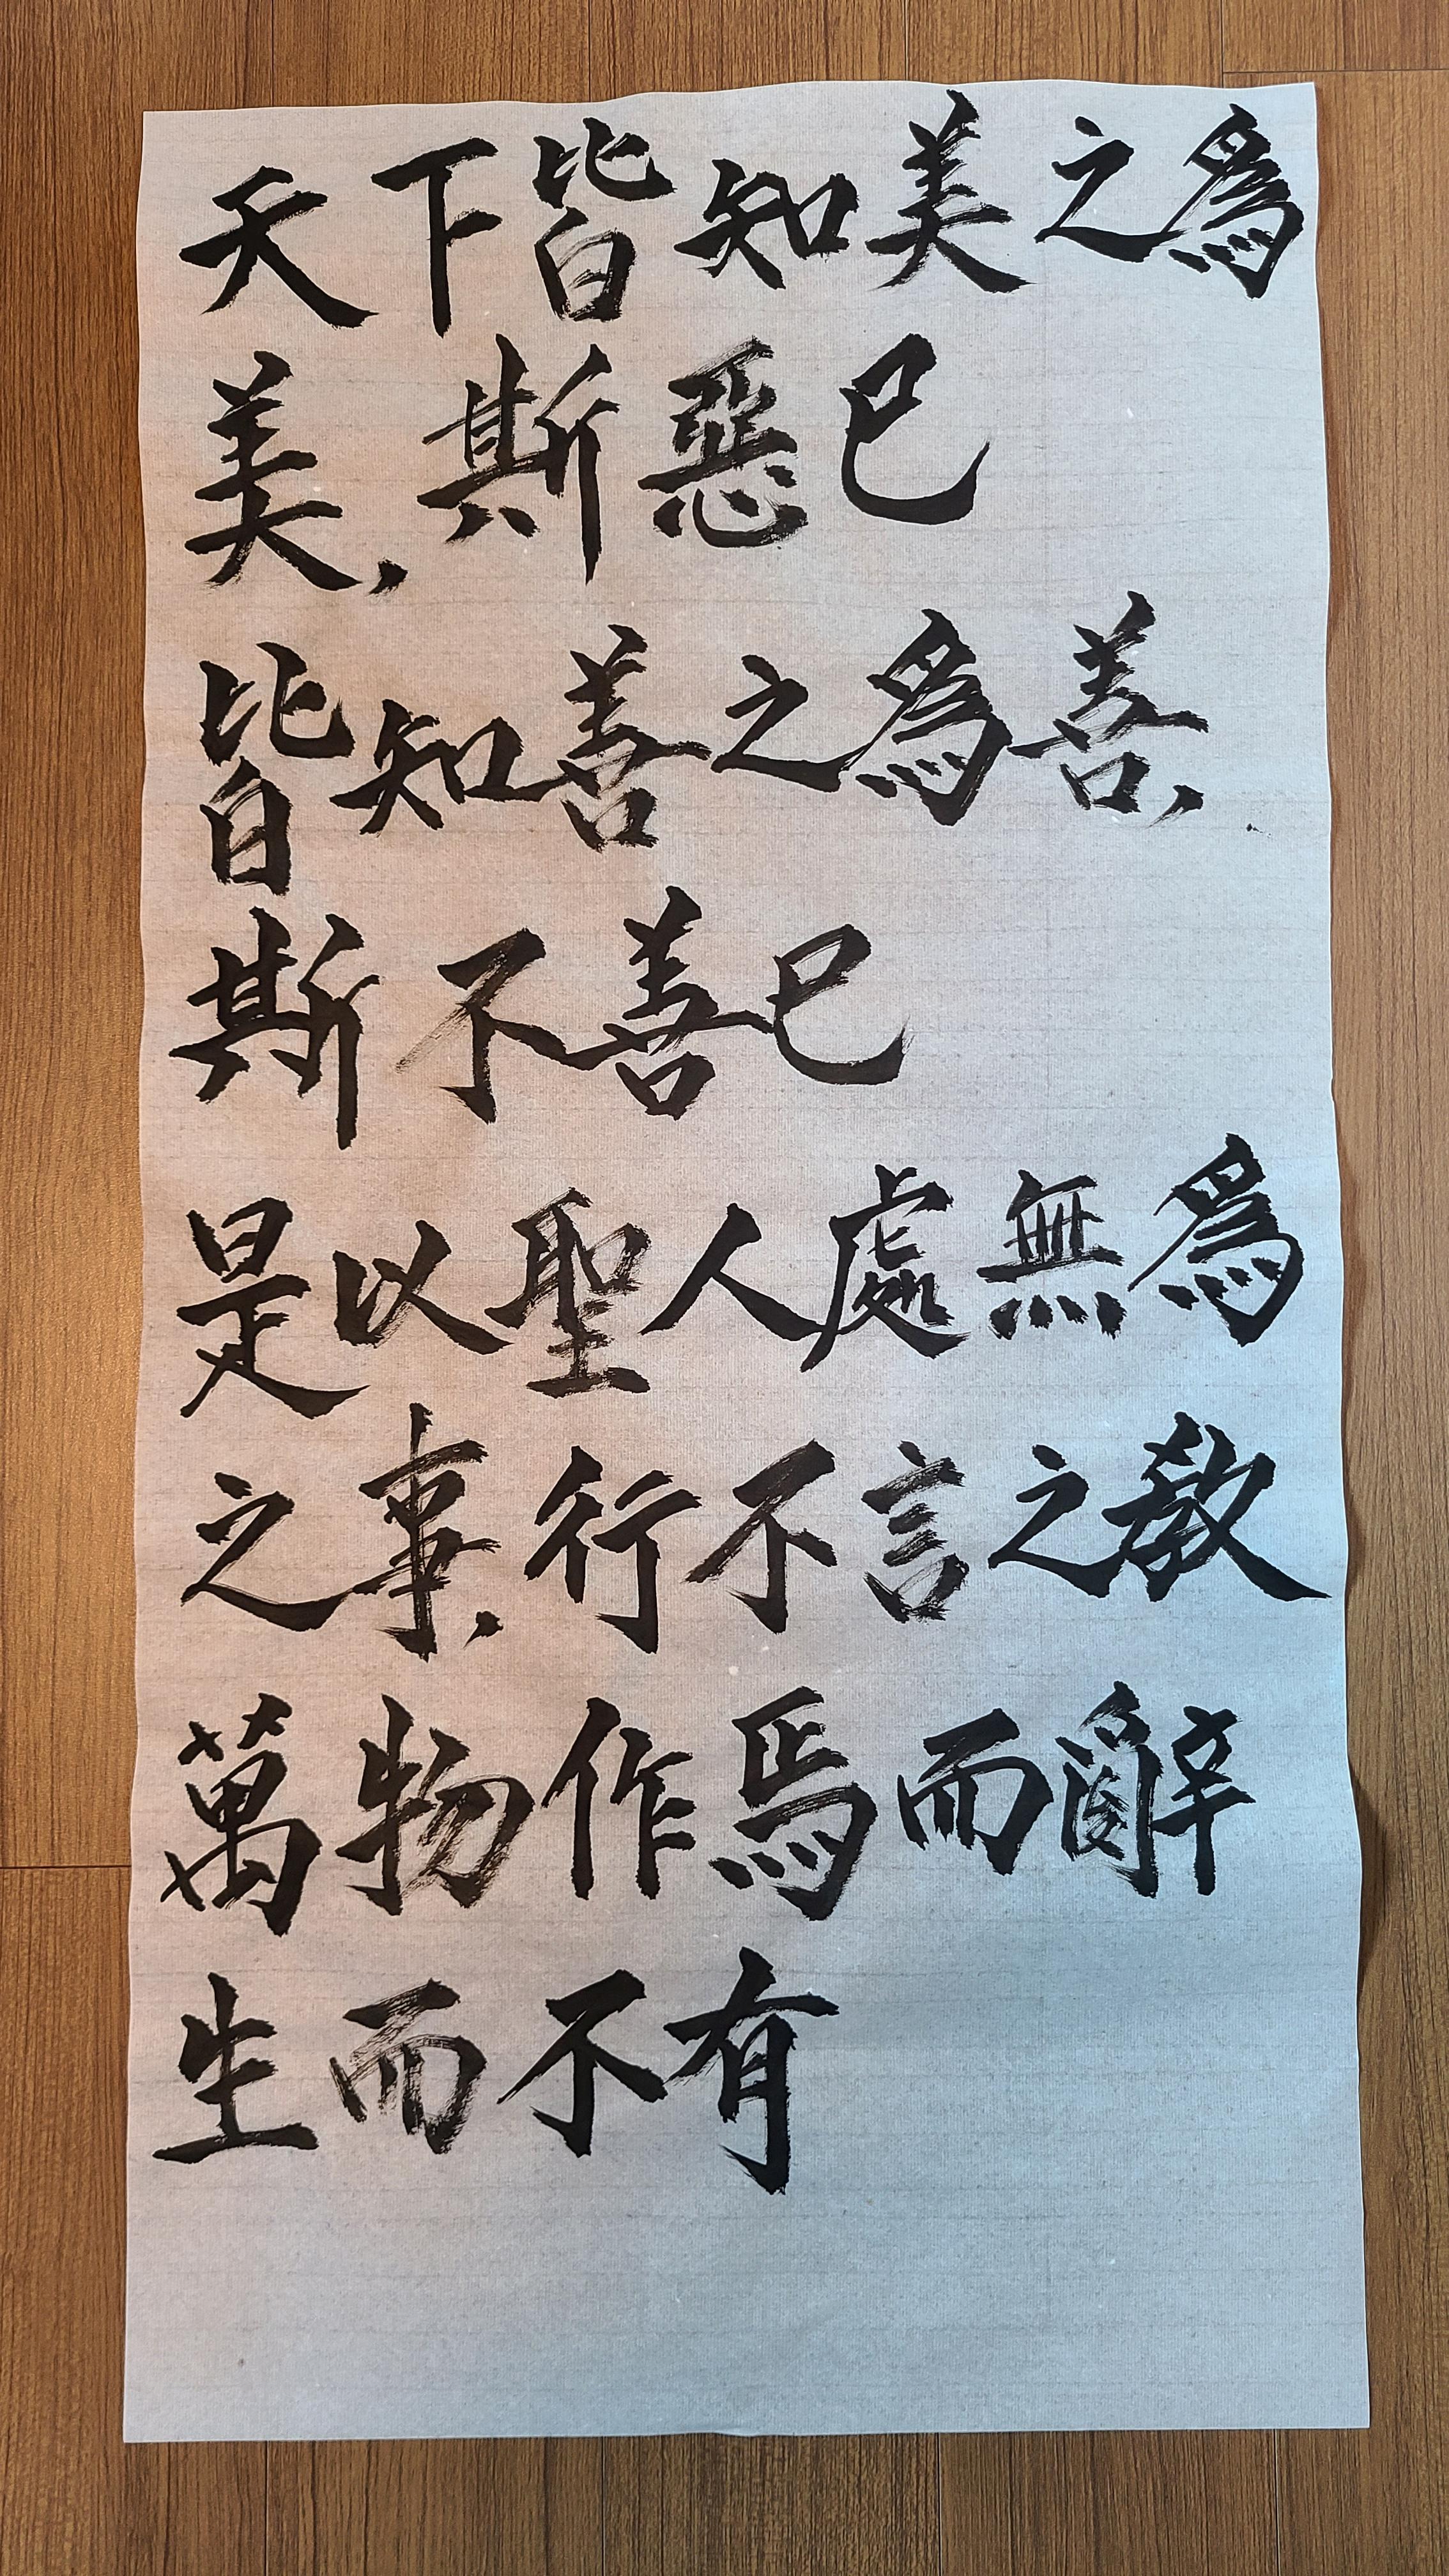 天下皆知美之爲
美,斯惡已
皆知善之爲善,
斯不善已
是以聖人處無爲
之事,行不言之教
萬物作焉而辭
生而不有